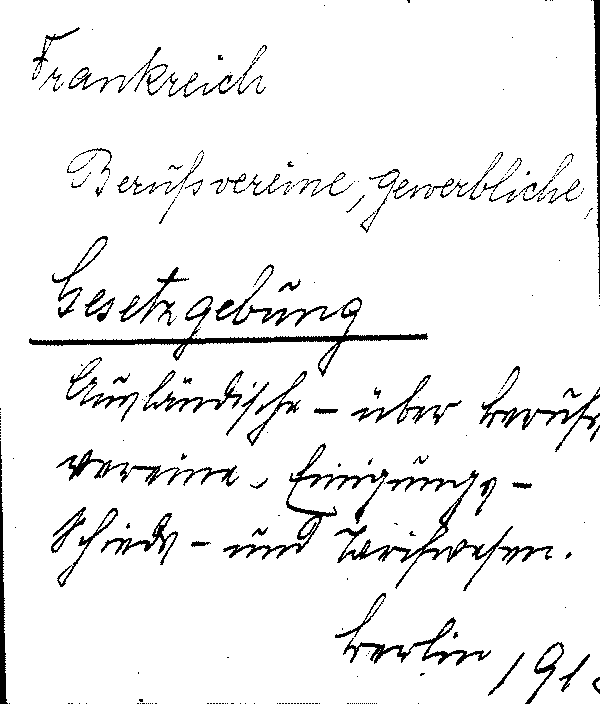 Frankreich
Berufsvereine, gewerbliche,
Gesetzgebung
Ausländische - über Berufs
vereine, Einigungs-
Schieds- und Tarifwesen.
Berlin